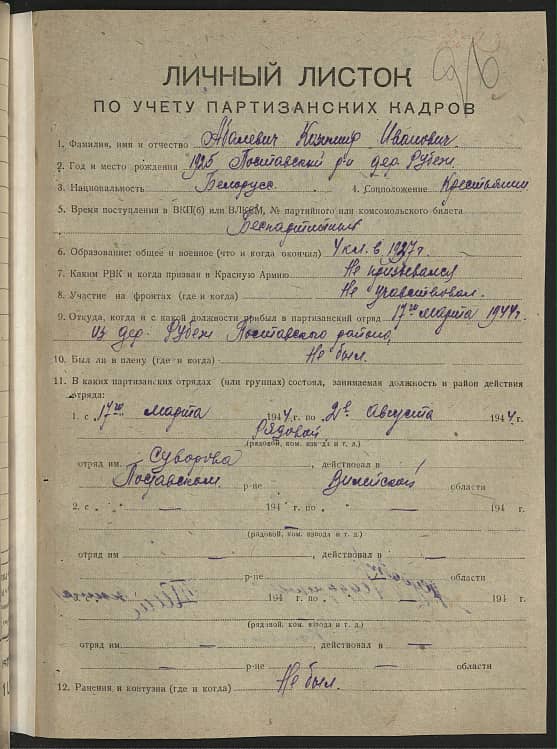 ЛИЧНЫЙ ЛИСТОК
ПО УЧЕТУ ПАРТИЗАНСКИХ КАДРОВ
1. Фамилия, имя и отчество Абалевич Казимир Иванович
2. Год и место рождения 1926 Поставский р-н дер. Рубеж
3. Национальность Белорусс. 4. Соцположение Крестьянин
5. Время поступления в ВКП(б) или ВЛКСМ, № партийного или комсомольского билета
Беспартийный
6. Образование: общее и военное (что и когда окончил) 4 кл. в 1937 г.
7. Каким РВК и когда призван в Красную Армию Не призывался
8. Участие на фронтах (где и когда) Не участвовал.
9. Откуда, когда и с какой должности прибыл в партизанский отряд 17го марта 1944 г.
из дер. Рубеж Поставского района,
10. Был ли в плену (где и когда) Не был.
11. В каких партизанских отрядах (или группах) состоял, занимаемая должность и район действия
отряда:
1. с 17го марта 1944 г. по 2го Августа 1944 г.
Рядовой
(рядовой, ком. взв-да и т. д.)
отряд им. Суворова, действовал в
Поставском р-не Вилейской области
2. с — 194 г. по — 194 г.
—
(рядовой, ком. взвода и т. д.)
отряд им — действовал в —
— р-не — области
194 г. по — 194 г.
(рядовой, ком. взвода и т. д.)
отряд им — действовал в —
— р-не — области
12. Ранения и контузии (где и когда) Не был.